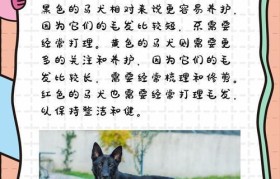 黑色的马犬相对来说更容易养护，
因为它们的毛发比较短，不需要
经常打理。黄色的马犬则需要更
多的关注和养护，因为它们的毛
发比较长，需要经常梳理和修剪。
红色的马犬也需要经常打理毛发，
以保持整洁和健。